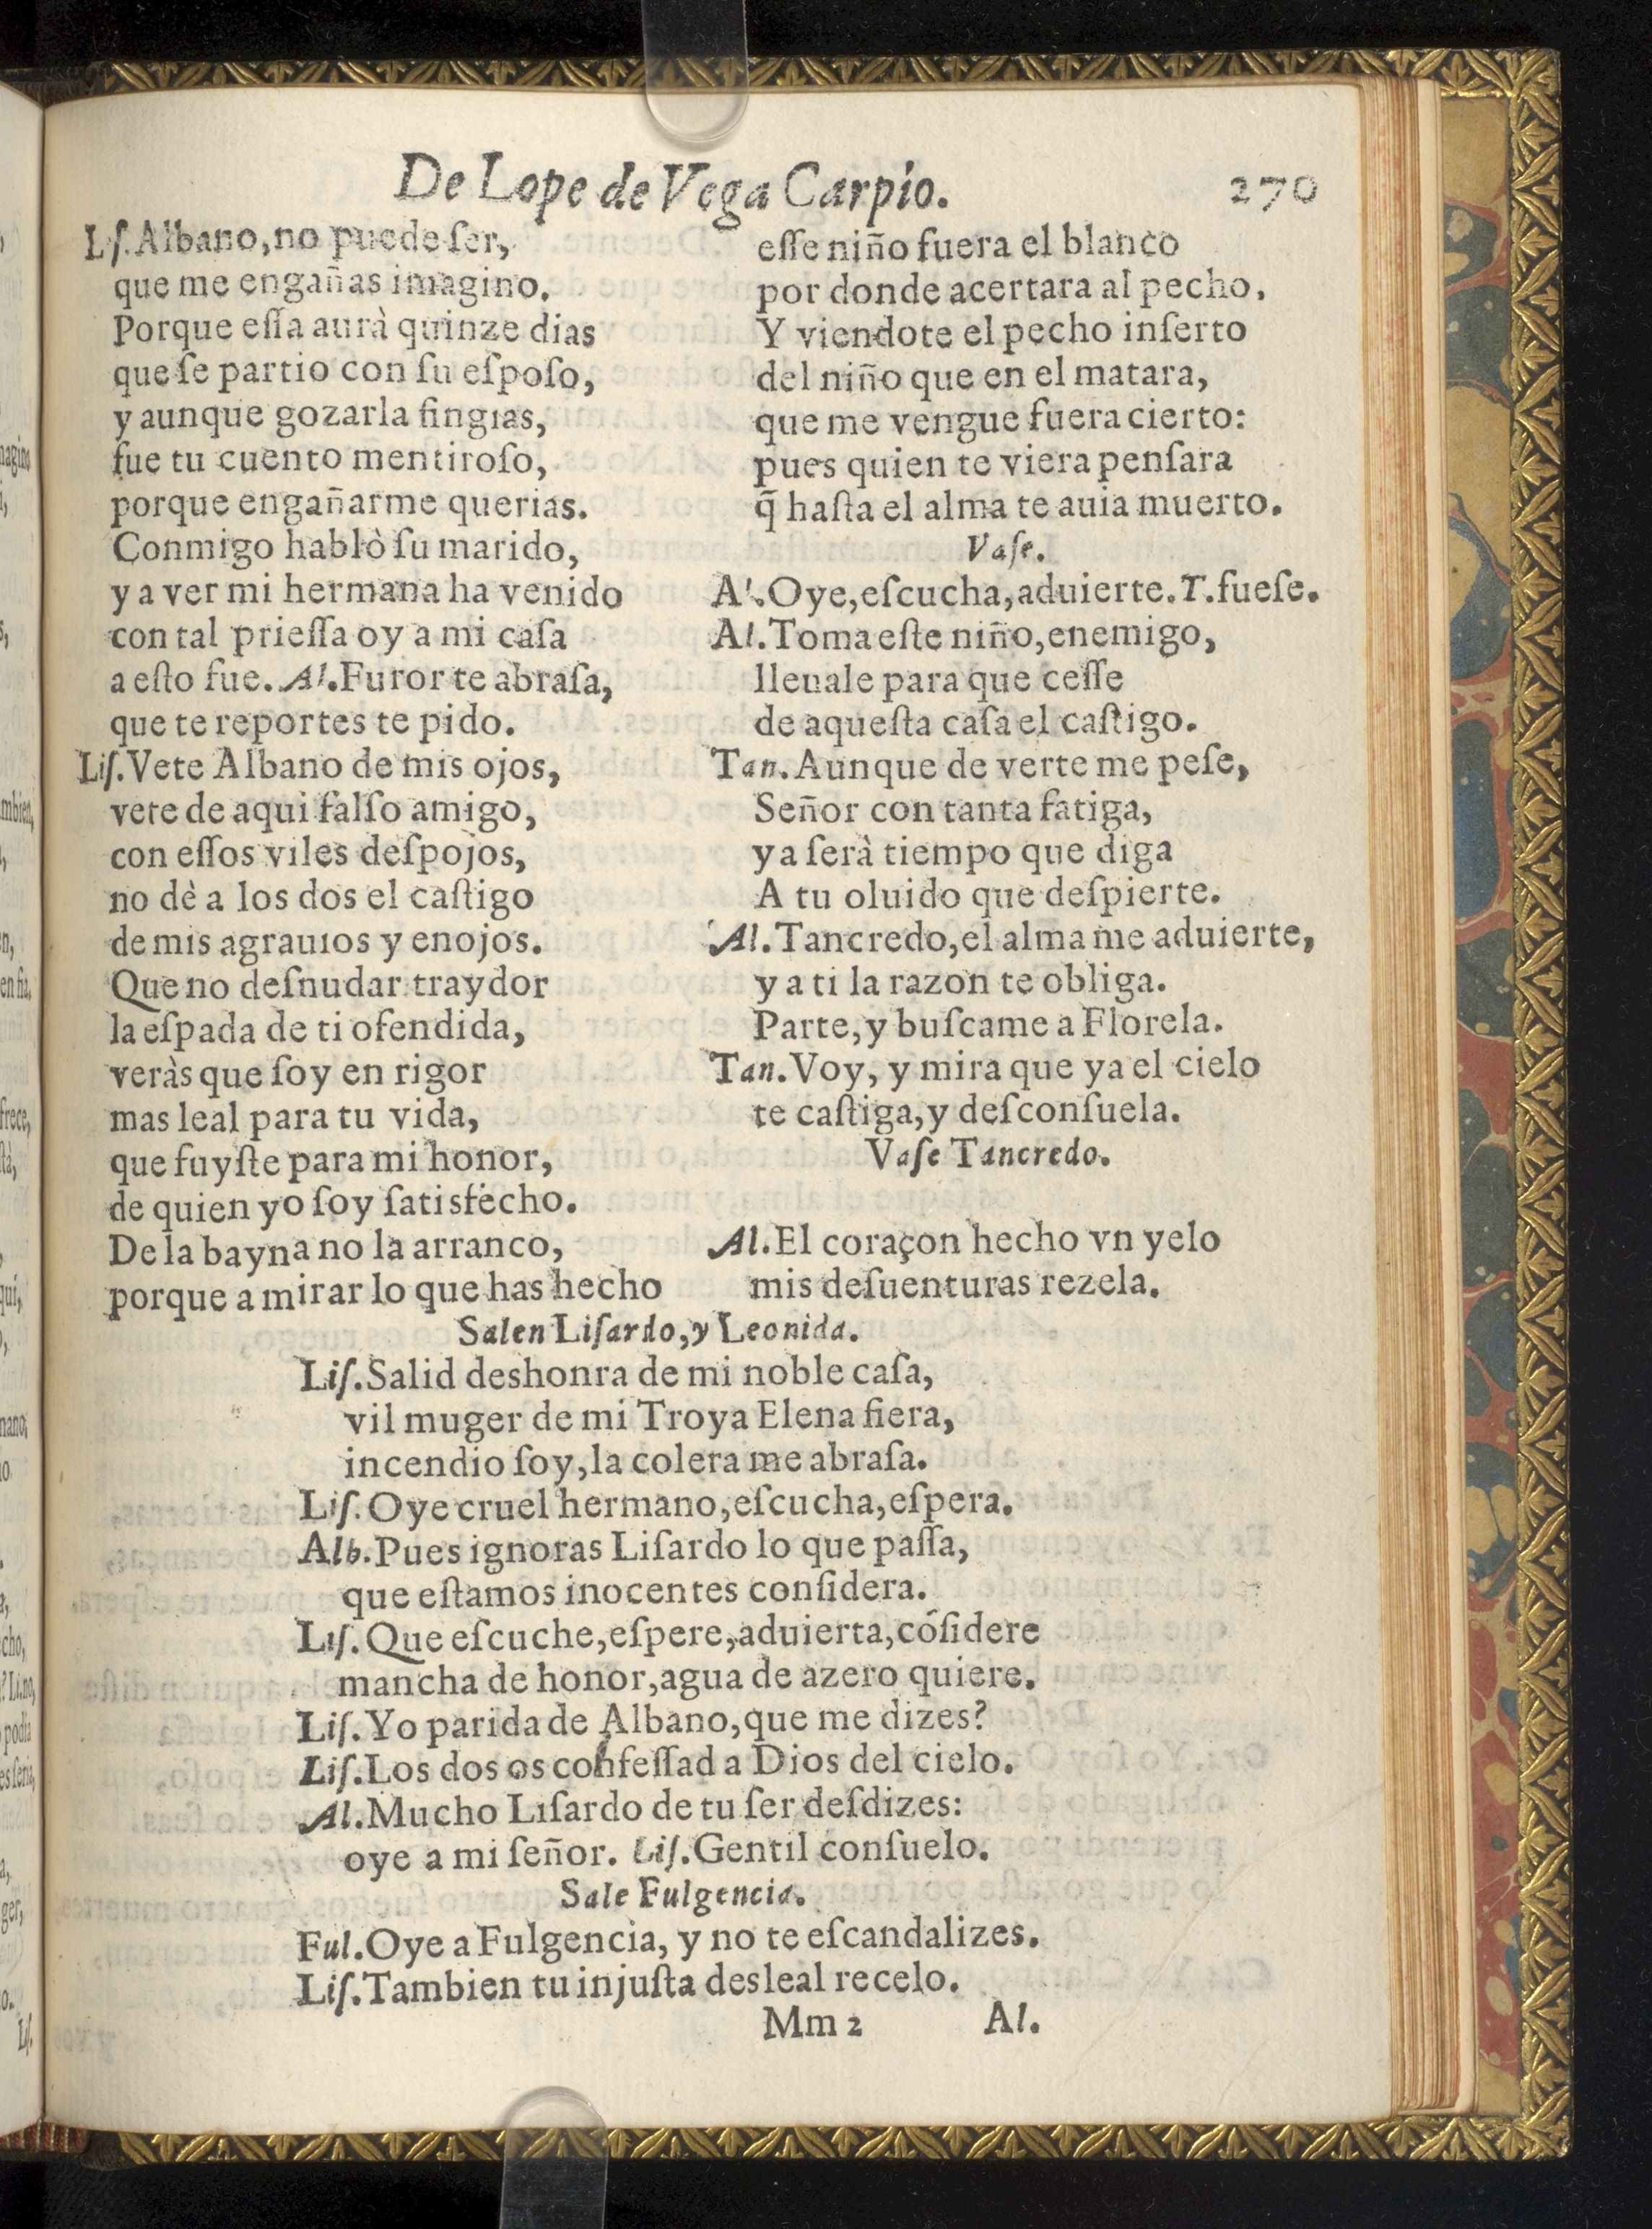 De Lope de Vega Carpio. 270
Lſ. Albano, no puede ſer,
que me engañas imagino.
Porque eſſa aurà quinze dias
que ſe partio con ſu eſpoſo,
y aunque gozarla fingias,
fue tu cuento mentiroſo,
porque engañarme querias.
Conmigo hablò ſu marido,
y a ver mi hermana ha venido
con tal prieſſa oy a mi caſa
a eſto fue. Al. Furor te abraſa,
que te reportes te pido.
Liſ. Vete Albano de mis ojos,
vete de aqui falſo amigo,
con eſſos viles deſpojos,
no dè a los dos el caſtigo
de mis agrauios y enojos.
Que no deſnudar traydor
la eſpada de ti ofendida,
veràs que ſoy en rigor
mas leal para tu vida,
que fuyſte para mi honor,
de quien yo ſoy ſatisfecho.
De la bayna no la arranco,
porque a mirar lo que has hecho
eſſe niño fuera el blanco
por donde acertara al pecho.
Y viendote el pecho inſerto
del niño que en el matara,
que me vengue fuera cierto:
pues quien te viera penſara
q̃ haſta el alma te auia muerto.
Vaſe.
Al. Oye, eſcucha, aduierte. T. fueſe.
Al. Toma eſte niño, enemigo,
lleuale para que ceſſe
de aqueſta caſa el caſtigo.
Tan. Aunque de verte me peſe,
Señor con tanta fatiga,
ya ſerà tiempo que diga
A tu oluido que deſpierte.
Al. Tancredo, el alma me aduierte,
y a ti la razon te obliga.
Parte, y buſcame a Florela.
Tan. Voy, y mira que ya el cielo
te caſtiga, y deſconſuela.
Vaſe Tancredo.
Al. El coraçon hecho vn yelo
mis deſuenturas rezela.
Salen Liſardo, y Leonida.
Liſ. Salid deshonra de mi noble caſa,
vil muger de mi Troya Elena fiera,
incendio ſoy, la colera me abraſa.
Liſ. Oye cruel hermano, eſcucha, eſpera.
Alb. Pues ignoras Liſardo lo que paſſa,
que eſtamos inocentes conſidera.
Liſ. Que eſcuche, eſpere, aduierta, cõſidere
mancha de honor, agua de azero quiere.
Liſ. Yo parida de Albano, que me dizes?
Liſ. Los dos os confeſſad a Dios del cielo.
Al. Mucho Liſardo de tu ſer deſdizes:
oye a mi ſeñor. Liſ. Gentil conſuelo.
Sale Fulgencia.
Ful. Oye a Fulgencia, y no te eſcandalizes.
Liſ. Tambien tu injuſta desleal recelo.
Mm 2 Al.